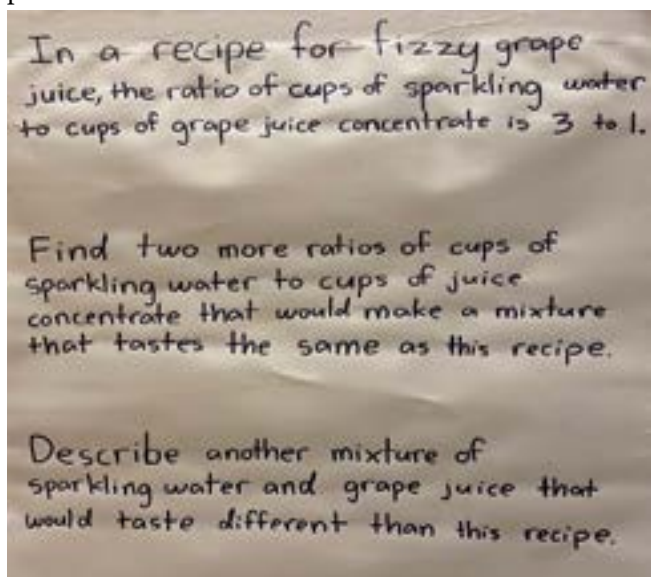 In a recipe for fizzy grape
juice, the ratio of cups of sparkling water
to cups of grape juice concentrate is 3 to 1.
Find two more ratios of cups of
sparkling water to cups of juice
concentrate that would make a mixture
that tastes the same as this recipe.
Describe another mixture of
sparkling water and grape juice that
would taste different than this recipe.